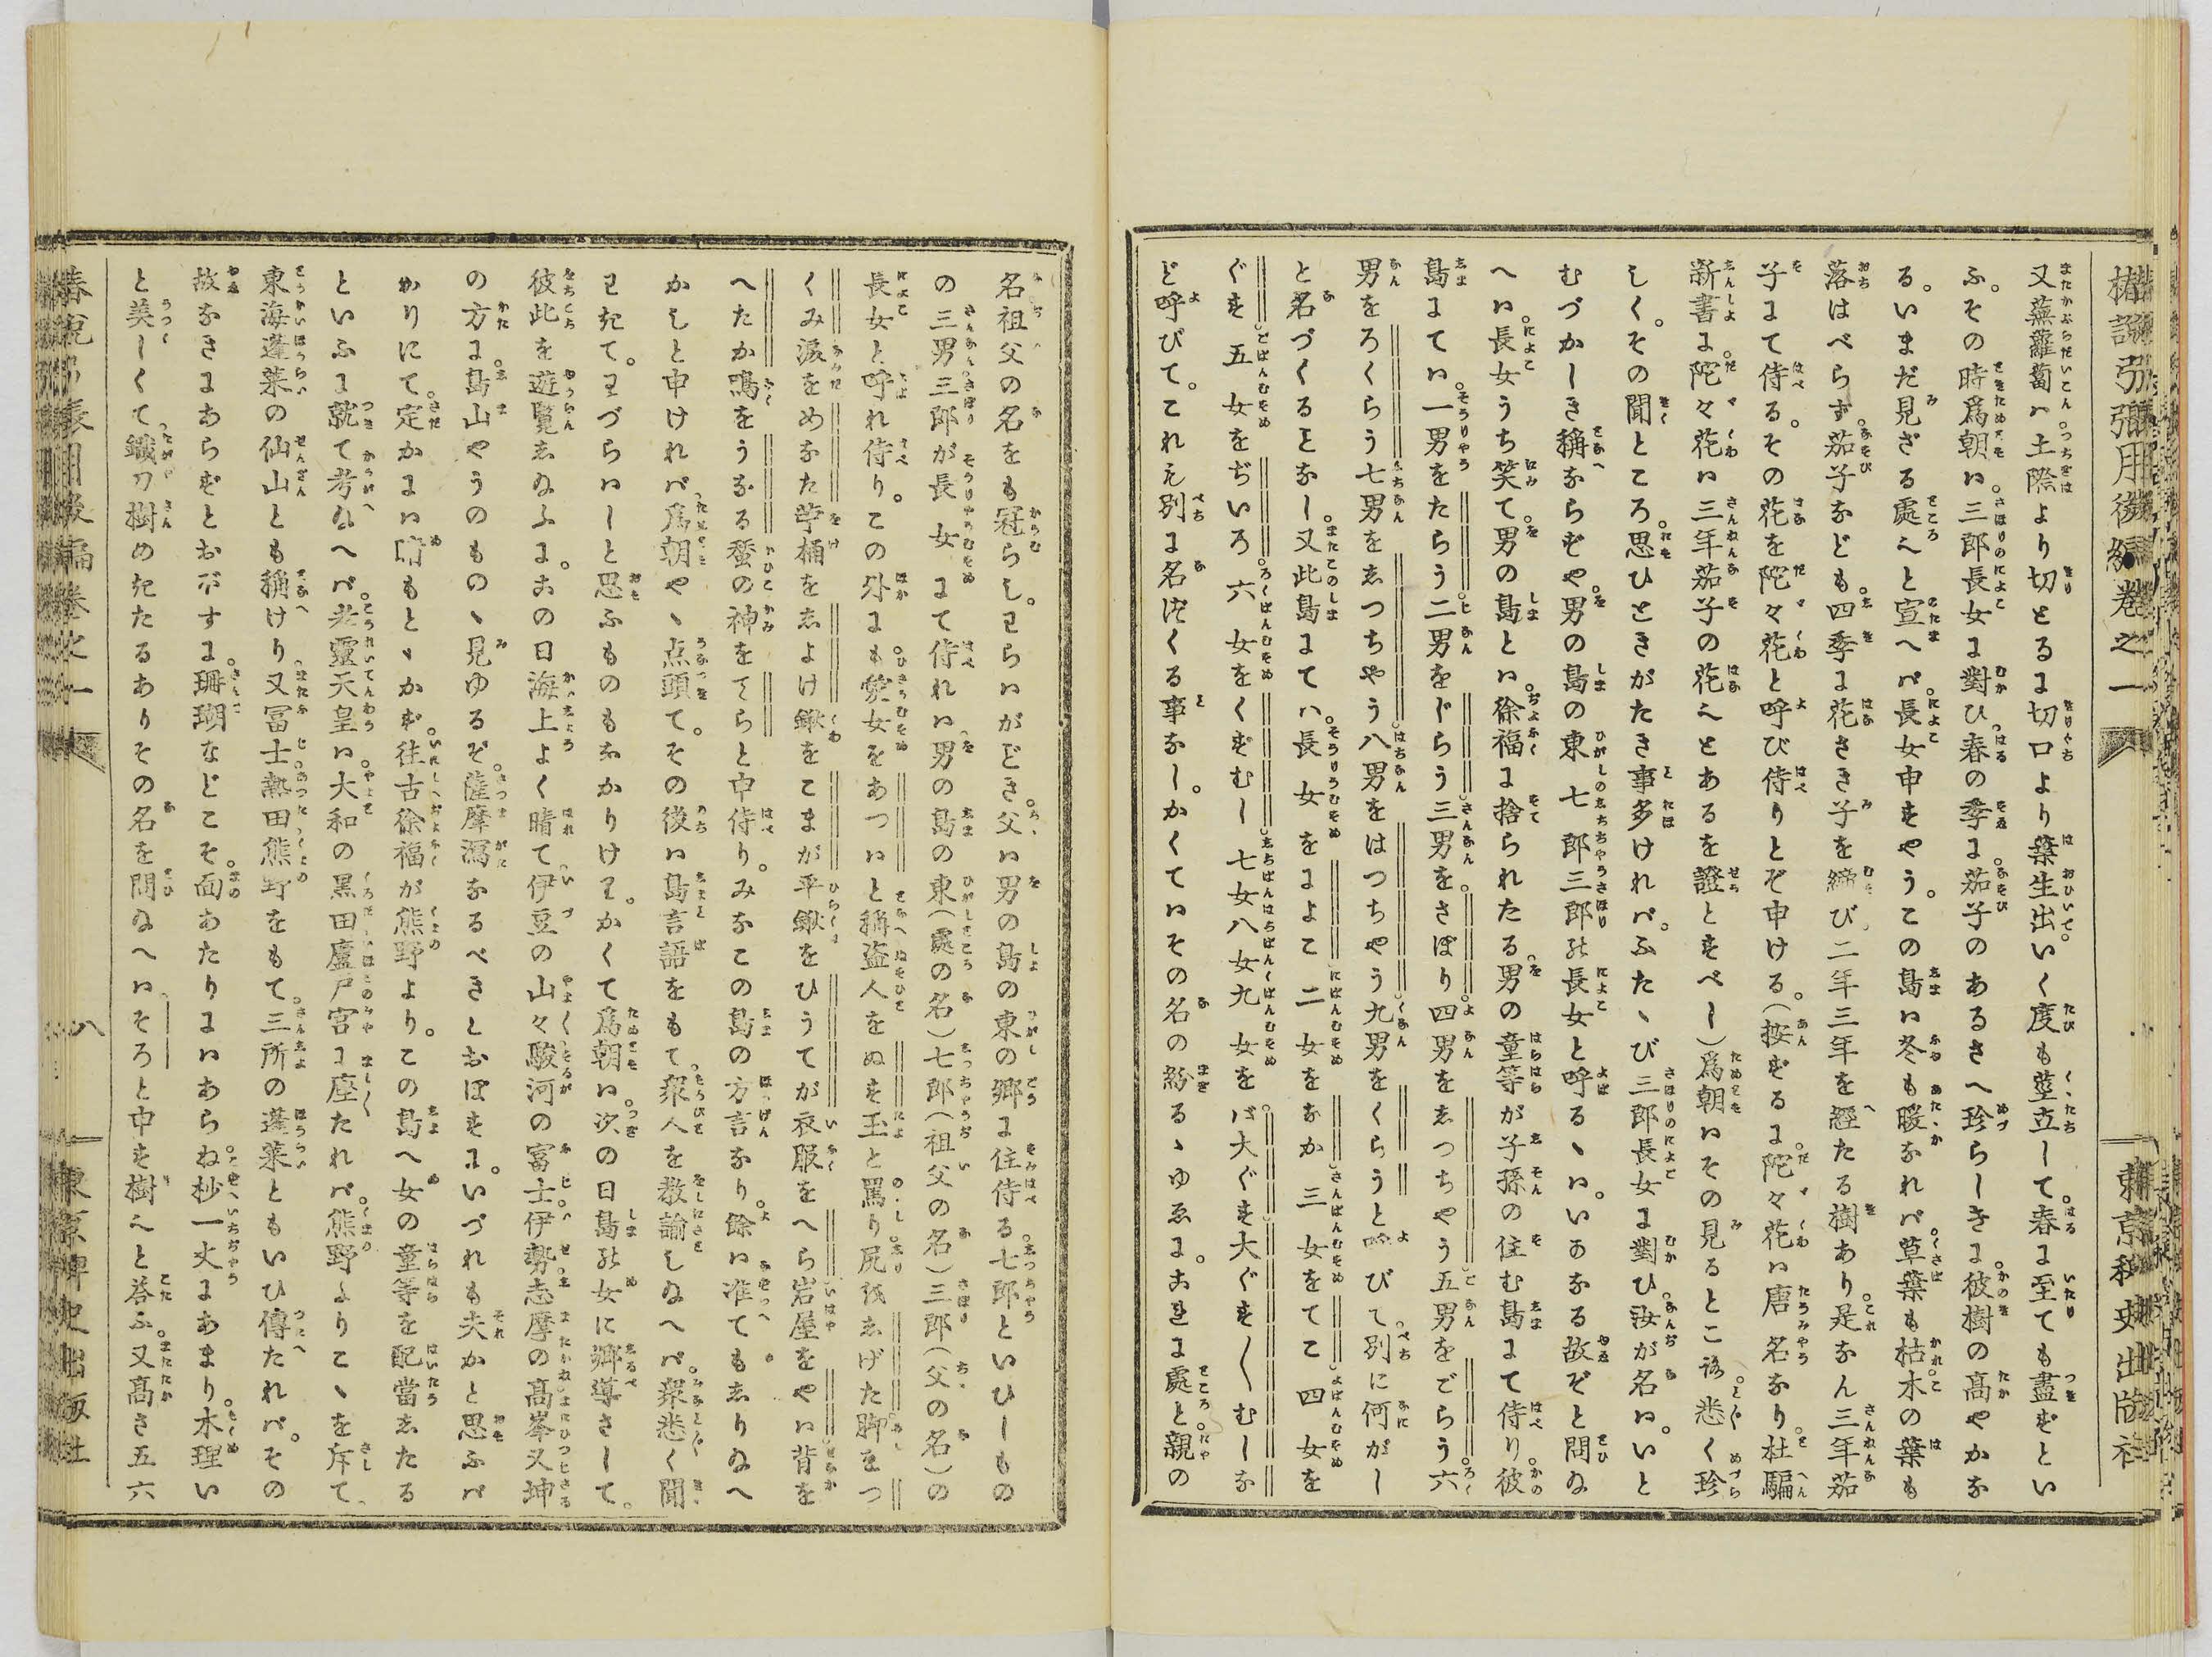 椿説弓張月後編卷之一
東京稗史出版社
又蕪蘿蔔ハ。土際より切とるに切口より葉生出。いく度も莖立して。春に至ても盡ずとい
ふ。その時爲朝ハ。三郎長女に對ひ。春の季に。茄子のあるさへ珍らしきに。彼樹の高やかな
る。いまだ見ざる處へと宣へバ。長女申すやう。この島ハ冬も暖なれバ。草葉も枯。木の葉も
落はべらず。茄子なども。四季に花さき子を締び。二年三年を經たる樹あり。是なん三年茄
子にて侍る。その花を陀々花と呼び侍りとぞ申ける。(按ずるに。陀々花ハ唐名なり。杜騙
新書に。陀々花ハ三年茄子の花へとあるを證とすべし)爲朝ハその見るところ。悉く珍
しく。その聞ところ。思ひときがたき事多けれバ。ふたゝび三郎長女に對ひ。汝が名ハ。いと
むづかしき稱ならずや。男の島の東七郎三郎が長女と呼るゝハ。いかなる故ぞと問給
へハ。長女うち笑て。男の島とハ。徐福に捨られたる。男の童等が子孫の住む島にて侍り。彼
島にてハ。一男をたらう二男をじらう三男をさぼり四男をしつちやう五男をごらう六
男をろくらう七男をしつちやう八男をはつちやう九男をくらうと呼びて。別に何がし
と名づくることなし。又此島にてハ。長女をによこ二女をなか三女をてこ四女を
ぐす。五女をぢいろ六女をくずむし七女八女九女をバ大ぐす大ぐす〳〵むしな
ど呼びて。これも別に名づくる事なし。かくてハその名の紛るゝゆゑに。おのれに處と親の
名祖父の名をも冠らし。わらハがごとき。父ハ男の島の東の郷に住侍る。七郎といひしもの
の三男三郎が長女にて侍れハ。男の島の東(處の名)七郎(祖父の名)三郎(父の名)の
長女と呼れ侍り。この外にも。處女をあつハと稱。盗人をぬす玉と罵り。尻をしげた脚をつ
くみ涙をめなた苧桶をしよけ鍬をこまが平鍬をひうてが衣服をへら岩屋をやハ背を
へたか鳴をうなる蚕の神をてらと申侍り。みなこの島の方言なり。餘ハ准てもしり給へ
かしと申けれバ。爲朝やゝ点頭て。その後ハ島言語をもて。衆人を教諭し給へバ。衆悉く聞
わきて。わづらハしと思ふものもなかりけり。かくて爲朝ハ。次の日島の女に郷導さして。
彼此を遊覽し給ふに。この日海上よく晴て。伊豆の山々駿河の富士。伊勢志摩の高峯。又坤
の方に。島山やうのものゝ見ゆるぞ。薩摩潟なるべきとおぼすに。いづれも夫かと思ふバ
かりにて。定かにハ睛もとゞかず。往古徐福が熊野より。この島へ女の童等を配當したる
といふに就て考給へバ。孝靈天皇ハ。大和の黒田廬戸宮に座たれバ。熊野よりこゝを斥て
東海蓬莱の仙山とも稱けり。又富士熱田熊野をもて。三所の蓬莱ともいひ傳たれバ。その
故なきにあらずとおぼすに。珊瑚などこそ。面あたりにハあらね。杪一丈にあまり。木理い
と美しくて鐵刀樹めきたるあり。その名を問給へハ。そろと申す樹へと答ふ。又高さ五六
椿説弓張月後編卷之一
八
東京稗史出版社